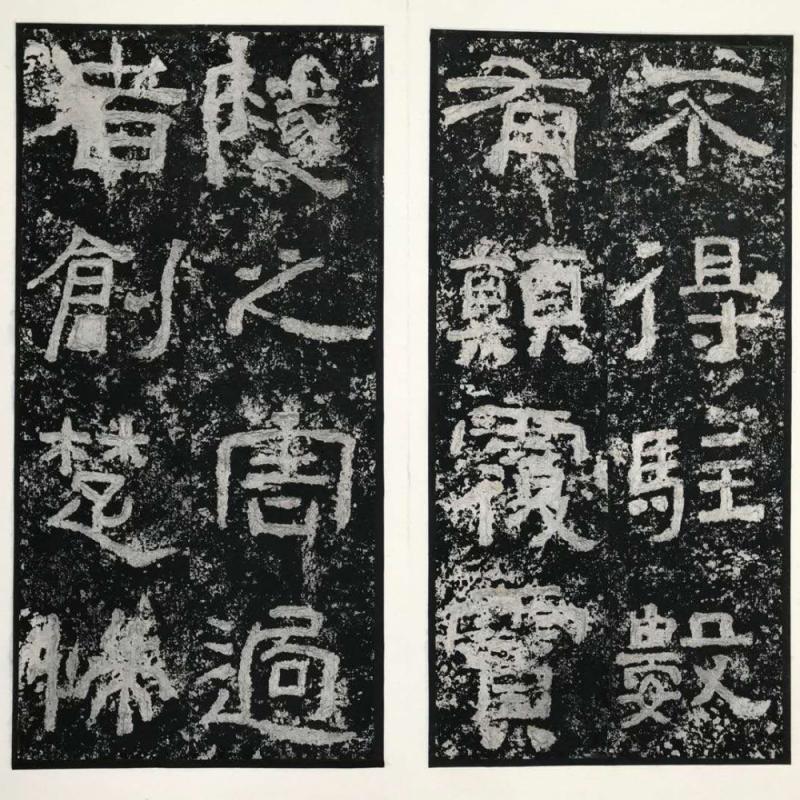 不得駐數
有顛覆霣
隧之害過
者創楚惴